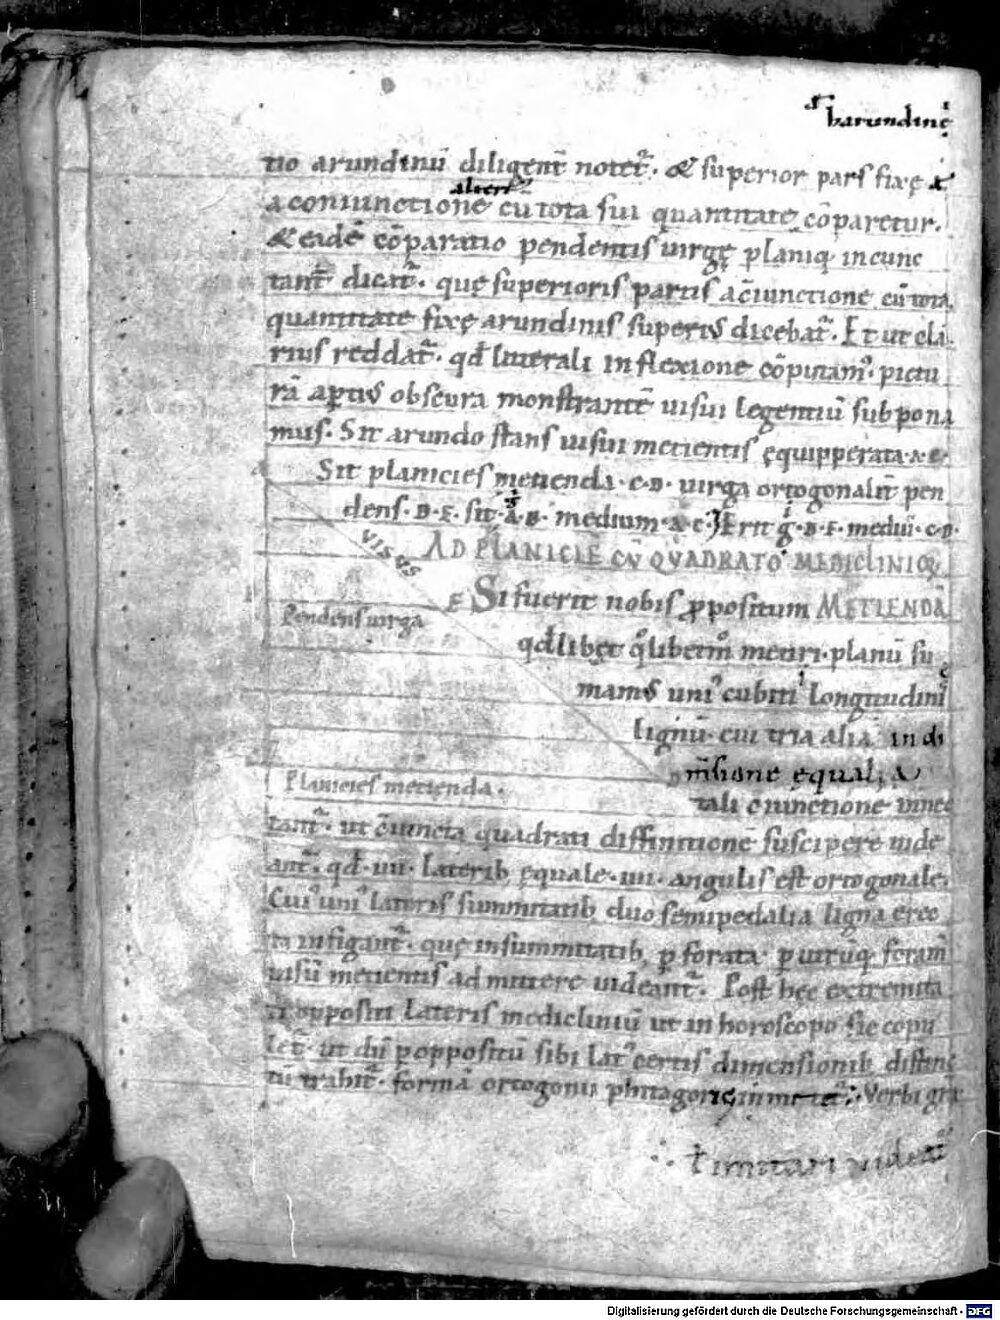 harundinę
tio arundinū diligent̄ notet᷑. & superior pars fixę
alterᵃ
a coniunctione cū tota sui quantitate cōparetur.
& eadē cōparatio pendentis uirgę planiq; incunc
tant̄ dicat᷑. que superioris partis a c̄iunctione cū tota
quantitate fixę arundinis superiꝰ dicebat᷑. Et ut cla
rius reddat᷑. qđ litterali inflexione cōputamꝰ. pictu
rā aptiꝰ obscura monstrantē uisui legentiū subpona
mus. Sit arundo stans uisui metientis ęquipperata .A.C.
Sit planicies metienda .C.D. uirga ortogonalit̄ pen
dens .B.E. sit .A.B. medium .A.C. Erit g̊ .B.E. mediū .C.D.
VISUS
AD PLANICIĒ CŪ QUADRATO MEDICLINIOQ;
E Si fuerit nobis ꝓpositum METIENDĀ
Pendens uirga
qđlibet q̊libetm̊ metiri. planū su
mamꝰ uniꝰ cubiti longitudinis
lignū. cui tria alia in di
m̄sione ęqualia
Planicies metienda.
tali c̄iunctione innec
tant᷑. ut c̄iuncta quadrati diffinitionē suscipere uide
ant᷑. qđ .iiii. laterib; ęquale .iiii. angulis est ortogonale.
Cuiꝰ uniꝰ lateris summitatib; duo semipedalia ligna erec
ta infigant᷑. que in summitatib; ꝑforata ꝑ utrūq; foram̄
uisū metientis admittere uideant᷑. Post hec extremita
ti oppositi lateris mediclinium ut in horoscopo sic copu
let᷑. ut dū ꝑ oppositū sibi latꝰ certis dimensionib; distinc
tū trahit᷑. formā ortogonii phitagorici Verbi grā
imitari uideat᷑